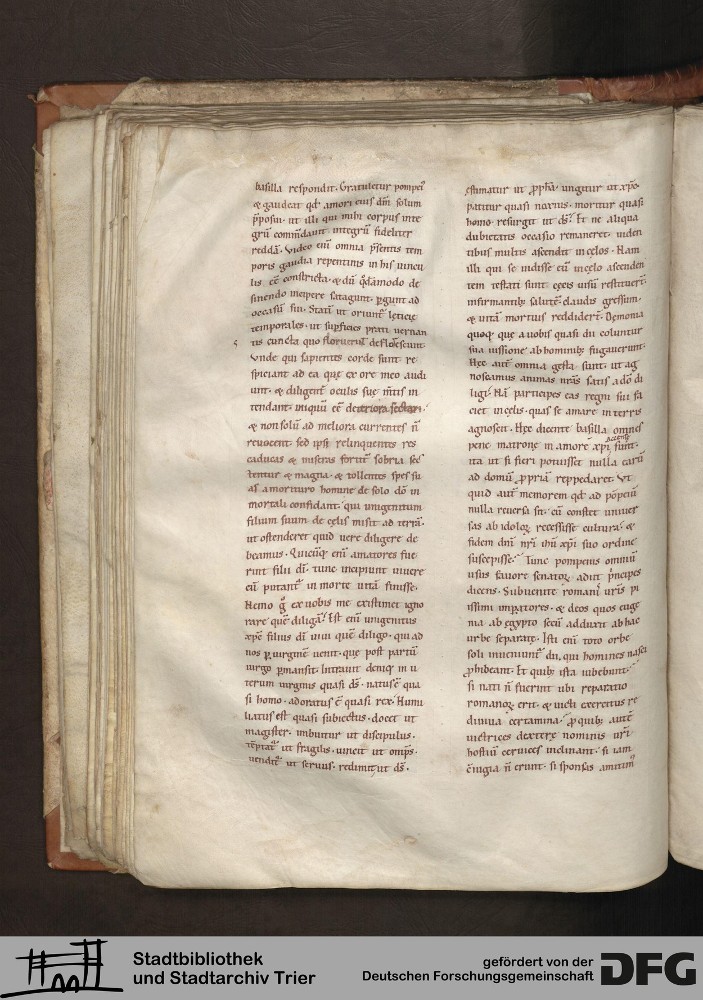 basilla respondit. Gratuletur pompei᷒
& gaudeat qđ amori eius dm̄ solum
p̄posui. ut illi qui mihi corpus inte
grū commdauit. integrū fideliter
reddā. Video eni omnia p̄sentis tem
poris gaudia repentinis in his uincu
lis. eē constricta. & dū
sinendo incipere satagunt. pgunt ad
occasū sui. Statī ut oriunt᷒ lęticię
temporales. ut supficies prati uernan
tis cuncta quo floruerint deflorescunt.
Vnde qui sapientes corde sunt re
spiciant ad ea quę ex ore meo audi
unt. & diligent oculis suę m̄tis in
tendant. iniquū eē
& non solū ad meliora currentes n̄
reuocent. sed ipsi relinquentes res
caducas & miseras fortit sobria sec
tentur & magna. & tollentes spes su
as a morituro homine de solo dō in
mortali confidant. qui unigenitum
filium suum de cęlis misit ad terrā.
ut ostenderet quid uere diligere de
beamus. Quicūq; eni amatores fue
rint filii dī. tunc incipiunt uiuere
cū putant᷒ in morte uitā finisse.
Nemo g̊ ex uobis me existimet igno
rare quē diligā. Est eni unigenitus
xp̄c filius dī uiui quē diligo. qui ad
nos p uirginē uenit. quę post partū
uirgo pmansit. Intrauit deniq; in u
terum uirginis quasi ds̄. natus ē qua
si homo. adoratus ē quasi rex. Humi
liatus est quasi subiectus. docet ut
magister. imbuitur ut discipulus.
tēptat᷒ ut fragilis. uincit ut omps̄.
uendit᷒ ut seruus. redimit ut ds̄.
estimatur ut pph̄a. ungitur ut xp̄c.
patitur quasi noxius. moritur quasi
homo. resurgit ut ds̄. Et ne aliqua
dubietatis occasio remaneret. uiden
tibus multis ascendit in cęlos. Nam
illi qui se uidisse eū in cęlo ascenden
tem testati sunt. cęcis uisū restituer̄t.
infirmantib; salutē. claudis gressum.
& uitā mortuis reddidert. Demonia
quoq; quę a uobis quasi dii coluntur
sua iussione ab hominib; fugauerunt.
Hęc aut omnia gesta sunt. ut ag
noscamus animas nr̄as satis a dō di
ligi. Nā participes eas regni sui fa
ciet in cęlis. quas se amare in terris
agnoscit. Hęc dicente basilla omnes
pene matronę in amorē xp̄i accense sunt.
ita ut si fieri potuisset nulla earū
ad domū ppriā reppedaret. Vt
quid aut memorem qđ ad pōpeiū
nulla reuersa sit. cū constet uniuer
sas ab idoloꝝ recessisse cultura. &
fidem dn̄i nr̄i ihū xp̄i suo ordine
suscepisse. Tunc pompeius omniū
usus fauore senatoꝝ adiit p̄ncipes
dicens. Subuenite romanī uris pi
issimi impatores. & deos quos euge
nia ab egypto secū adduxit ab hac
urbe separate. Isti eni toto orbe
soli inueniunt᷒ dii, qui homines nasci
phibeant. Et quib; ista iubebunt.
si nati n̄ fuerint. ubi reparatio
romanoꝝ erit. & uicti exercitus re
diuiua certamina. p quib; aut
uictrices dextere nominis uri
hostiū ceruices inclinant. si iam
c̄iugia n̄ erunt. si sponsas amitim᷒
Stadtbibliothek
und Stadtarchiv Trier
gefördert von der
Deutschen Forschungsgemeinschaft
DFG